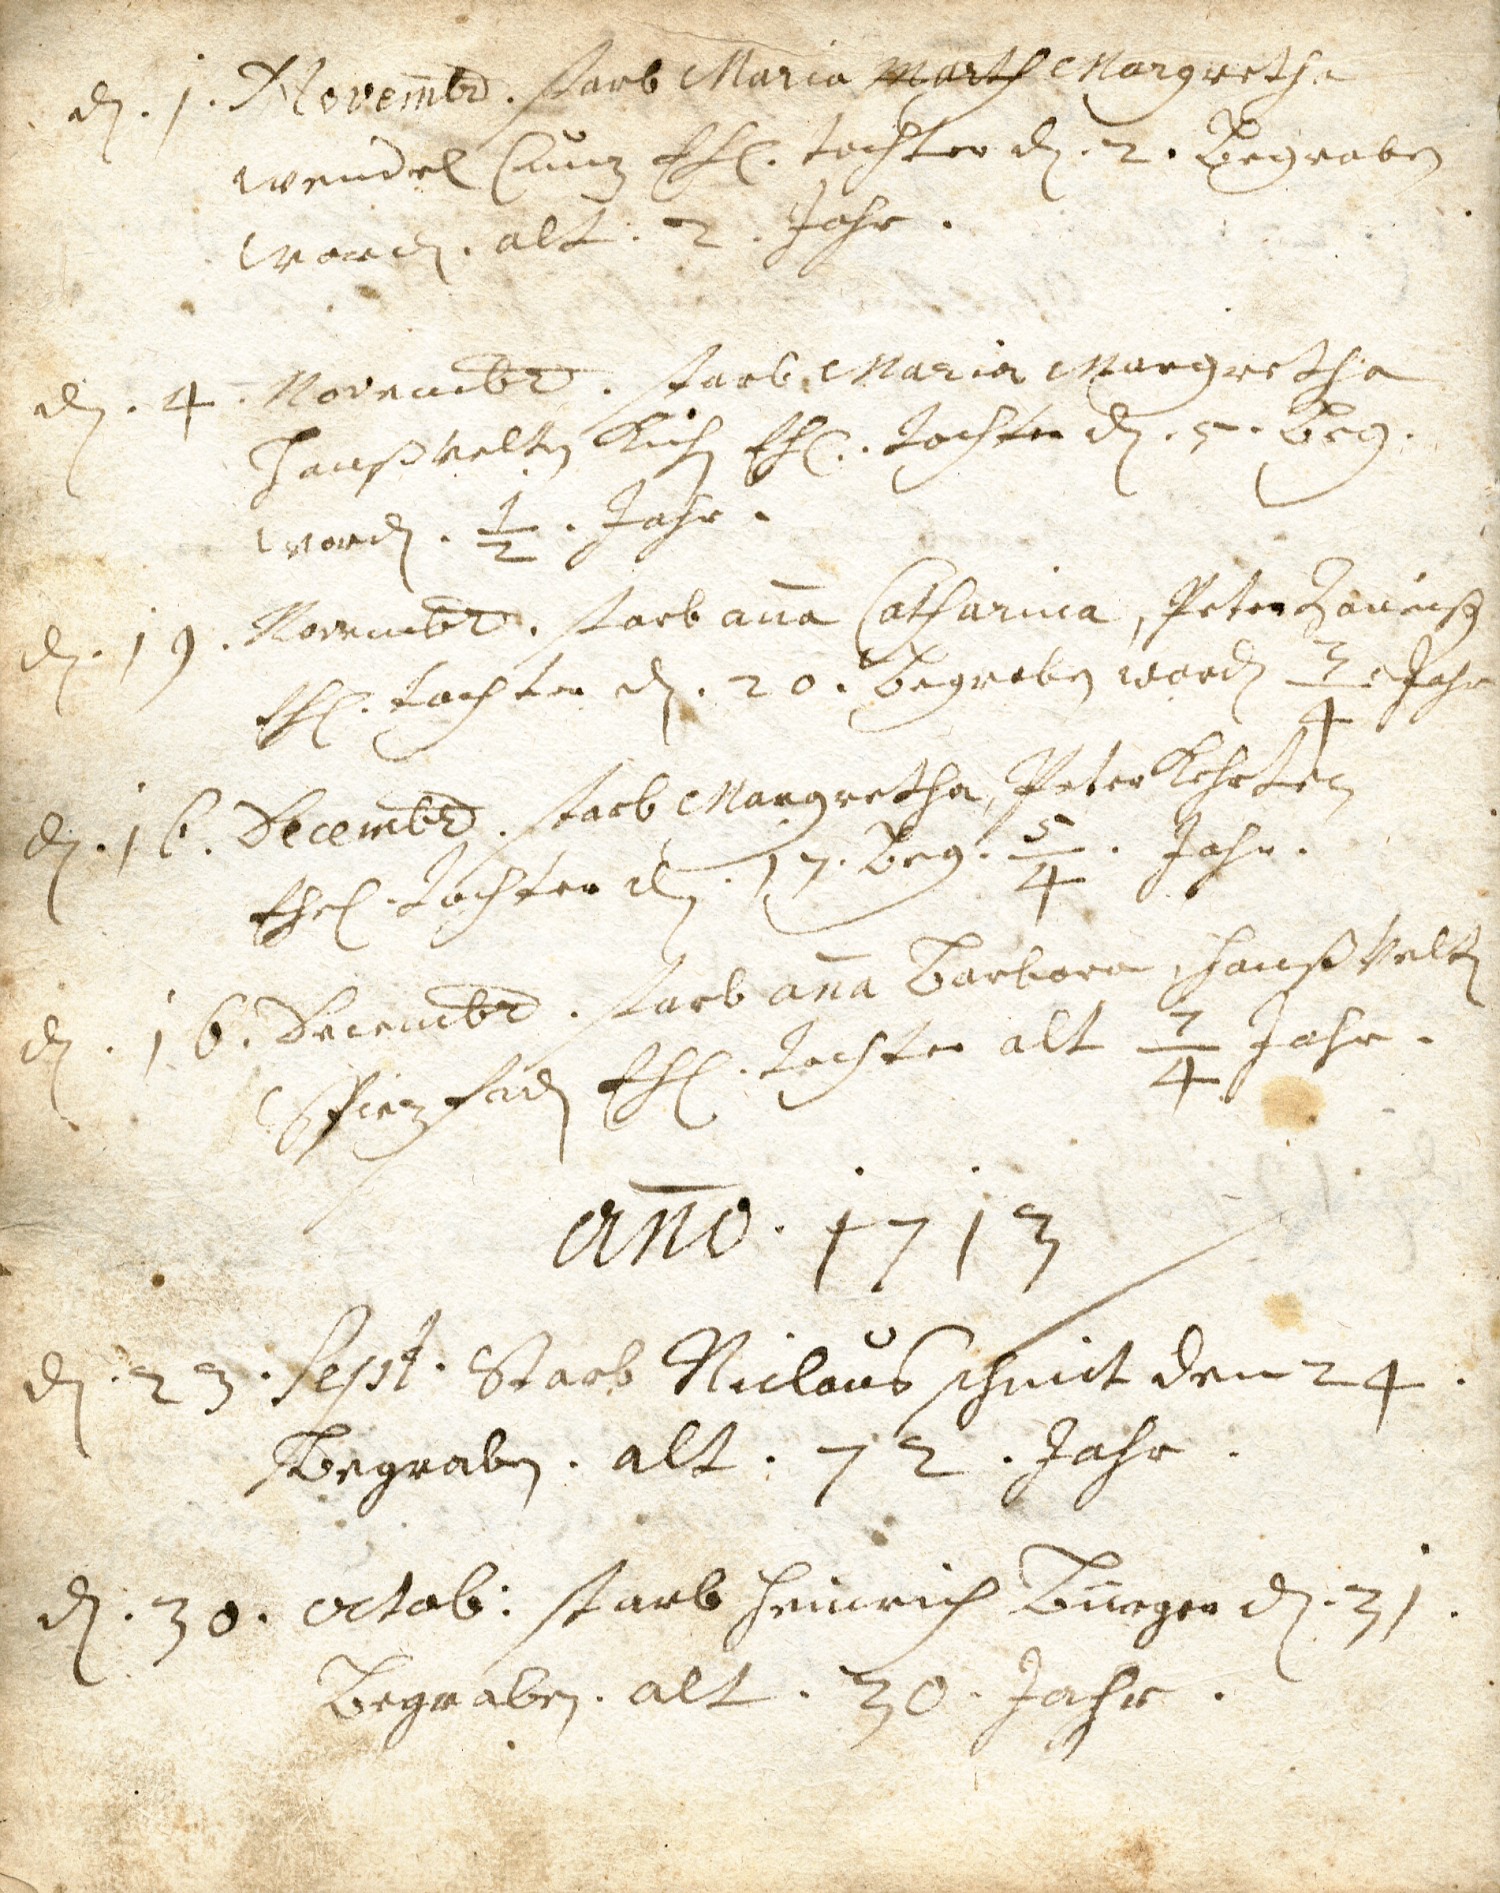 dḡ. 1. Novembr. starb Maria Marth Margretha
Wendel Cuntz Ehl. tochter dḡ. 2. Begraben
worden. alt. 2. Jahr.
dḡ. 4. Novembr. starb Maria Margretha
Hanß Velten Ehl. tochter dḡ. 5. Beg.
worden. 1/2. Jahr.
dḡ. 19. Novembr. starb an̄a Catharina, Peter
Ehl. tochter dḡ. 20. Begraben worden 3/4 Jahr
dḡ. 16. Decembr. starb Margretha, Peter
Ehel. tochter dḡ. 17. Beg. 5/4. Jahr.
dḡ. 16. Decembr. starb an̄a Barbara, Hanß Velten
Ehl. tochter alt 7/4 Jahr.
an̄o. 1713
dḡ. 23. Sept. Starb Niclaus Schmit den 24.
Begraben. alt. 72. Jahr.
dḡ. 30. octob: starb Heinrich Bu̅rger dḡ. 31.
Begraben. alt. 30. Jahr.